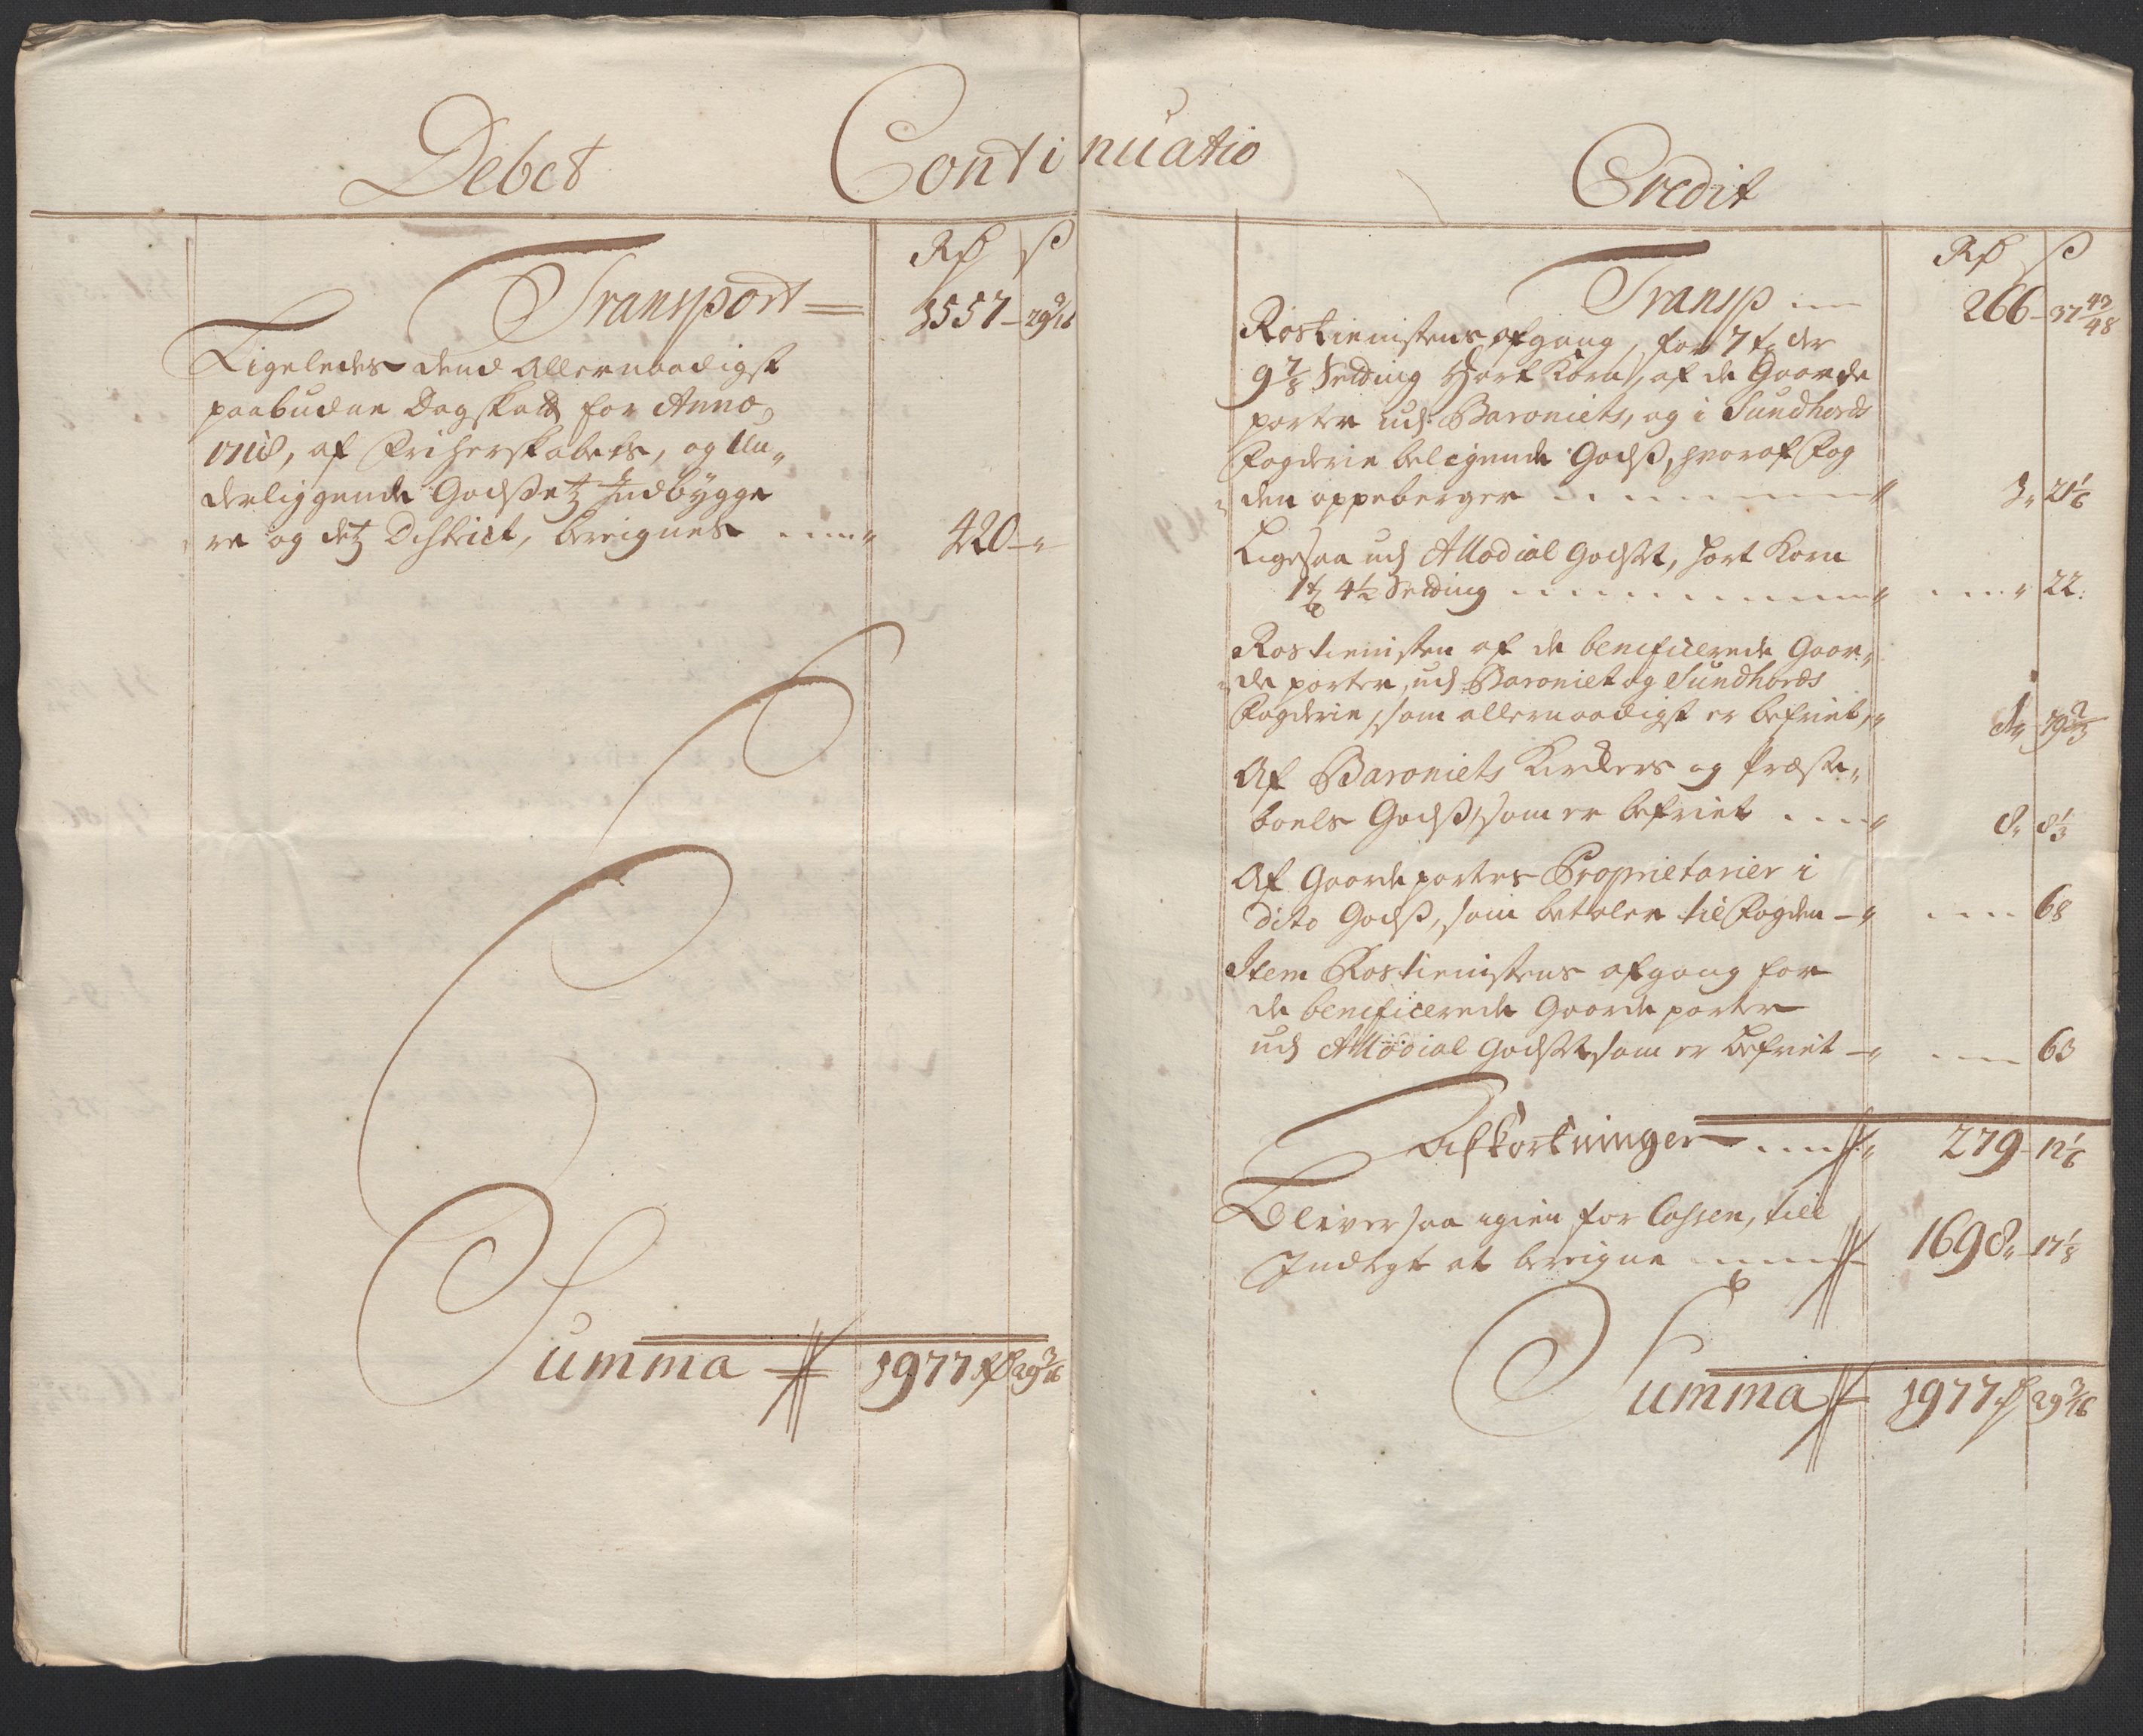 Debet
Continuatio
Credit
Rd ß
Transport 1557 29 3/16
Ligeledes dend Allernaadigst
paabudne Dagskatt for Anno
1718, af Friherskabets, og Un„
derliggende Godsetz Indbygge
re og detz District, bereignes 420
Summa 1977 Rd 29 3/16
Rd ß
Transp 266 37 43/48
Rostienistens afgang, for 7 td der
9 7/8 Setding Hart Korn, af de Gaarde
parter udj Baroniets, og i Sundhords
Fogderie beligende Godß, hvoraf Fog
den oppeberger 3 21 1/6
Ligesaa udj Allodial Godset, hart Korn
4 1/2 Setding 22
Rostienisten af de beneficerede Gaar„
de parter, udj Baroniet og Sundhords
Fogderie, som allernaadigst er befriet
Af Baroniets Kirckers og Præste„
boels Godß, som er befriet 8 8 1/3
Af Gaarde parters Proprietarier i
dito Godß, som betaler til Fogden 68
Item Rostienistens afgang for
de beneficerede Gaarde parter
udj Allodial Godset som er befriet 63
Afkortninger 279 12 1/6
Bliver saa igien for Cassen, till
Indtegt at bereigne 1698 17 1/8
Summa 1977 Rd 29 3/16